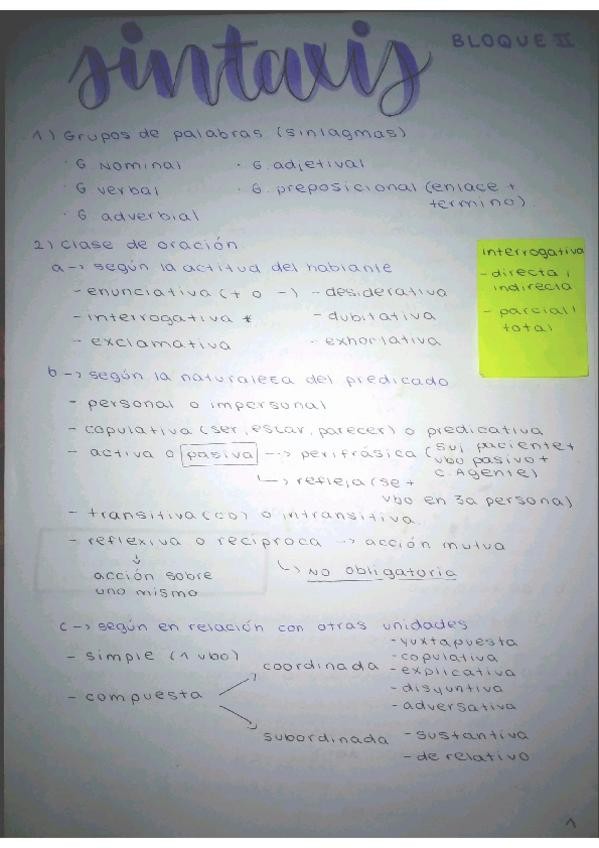 sintaxis BLOQUE II
1) Grupos de palabras (sintagmas)
· G. Nominal · G. adjetival
· G verbal · G. preposicional (enlace +
termino).
· G adverbial
2) clase de oración
a -> según la actitud del hablante
- enunciativa (+ o -) - desiderativa
- interrogativa * - dubitativa
- exclamativa - exhortativa
interrogativa
- directa /
indirecta
- parcial /
total
b -> según la naturaleza del predicado
- personal o impersonal
- copulativa (ser, estar, parecer) o predicativa
- activa o pasiva --> perifrásica (suj paciente +
vbo pasivo +
C. Agente)
-> refleja (se +
vbo en 3a persona)
- transitiva (CD) o intransitiva.
- reflexiva o recíproca -> acción mutua
acción sobre
uno mismo
-> NO obligatoria
c -> según en relación con otras unidades
- simple (1 vbo)
- compuesta
coordinada
- yuxtapuesta
- copulativa
- explicativa
- disyuntiva
- adversativa
subordinada - sustantiva
- de relativo
1